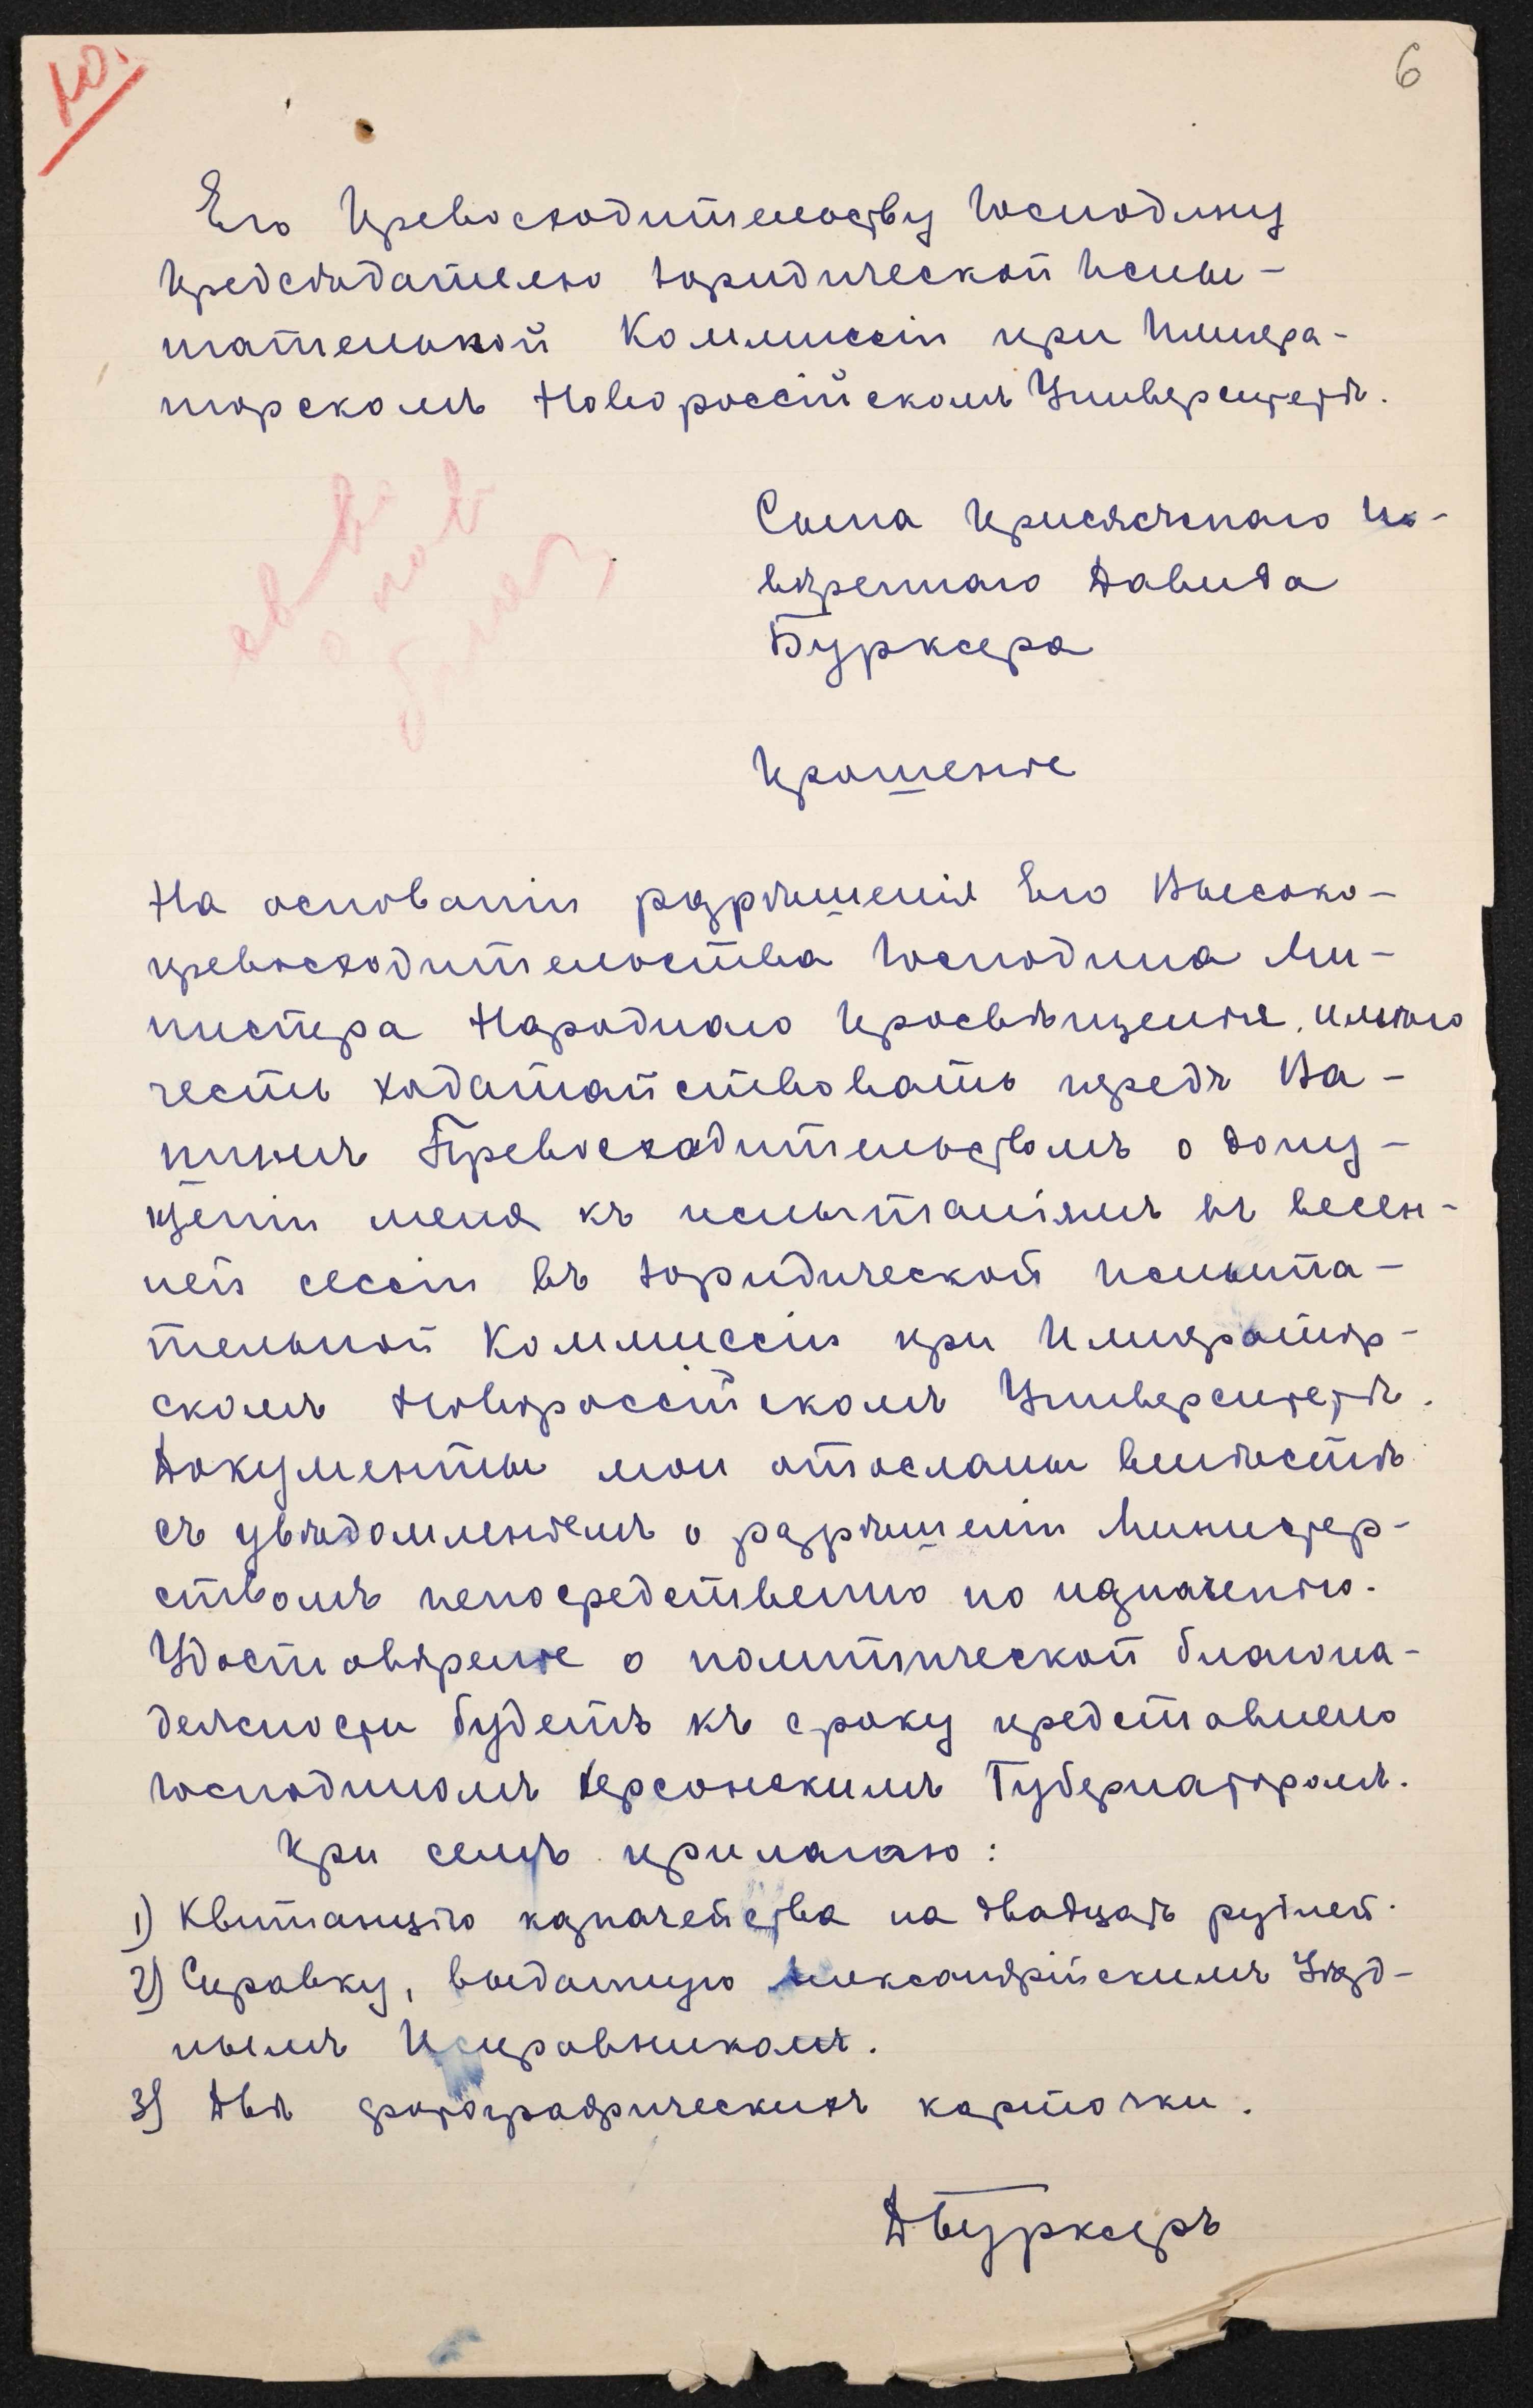 Ю.
6
Его Превосходительству Господину
Предсѣдателю Юридической Испы-
тательной Коммиссіи при Импера-
торскомъ Новороссійскомъ Университетѣ.
Сына Присяжнаго По-
вѣреннаго Давида
Бурксера
Прошеніе
На основаніи разрѣшенія Его Высоко-
превосходительства Господина Ми-
нистра Народнаго Просвѣщенія, имѣю
честь ходатайствовать передъ Ва-
шимъ Превосходительствомъ о допу-
щеніи меня къ испытаніямъ въ весен-
ней сессіи въ Юридической Испыта-
тельной Коммиссіи при Император-
скомъ Новороссійскомъ Университетѣ.
Документы мои отосланы вмѣстѣ
съ увѣдомленіемъ о разрѣшеніи Министер-
ствомъ непосредственно по назначенію.
Удостовѣреніе о политической благона-
дежности будетъ къ сроку представлено
Господиномъ Херсонскимъ Губернаторомъ.
При семъ прилагаю:
1) Квитанцію казначейства на двадцать рублей.
2) Справку, выданную Александрійскимъ Уѣзд-
нымъ Исправникомъ.
3) Двѣ фотографическихъ карточки.
ДБурксеръ